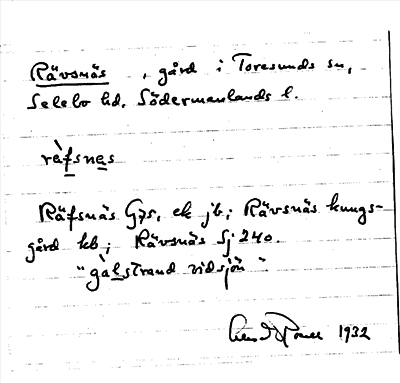 Rävsnäs, gård i Toresunds sn,
Selebo hd. Södermanlands l.
räfsnes
Räfsnäs G75, ek jb; Rävsnäs kungs-
gård kb; Rävsnäs Sj 240.
"gålstrand vid sjön"
1932